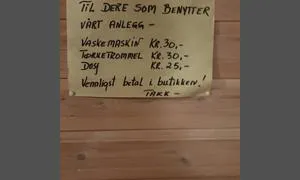 TIL DERE SOM BENYTTER
VÅRT ANLEGG -
VASKEMASKIN KR. 30,-
TØRKETROMMEL KR. 30,-
DUSJ KR. 25,-
Vennligst betal i butikken!
TAKK -